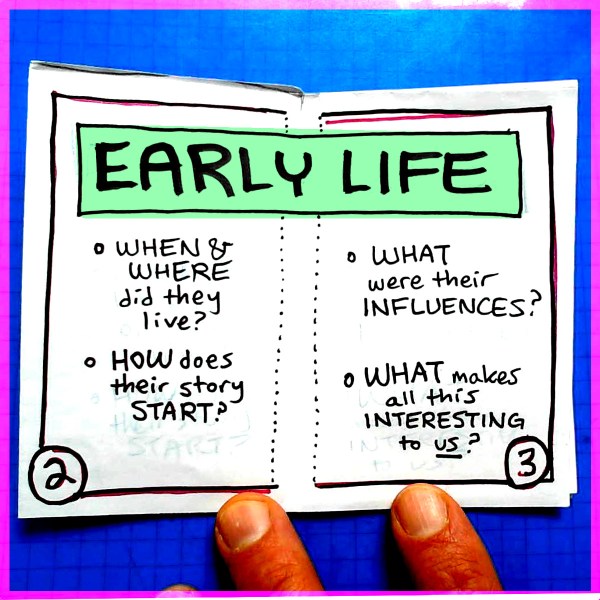 EARLY LIFE
o WHEN &
WHERE
did they
live?
o HOW does
their story
START?
2
o WHAT
were their
INFLUENCES?
o WHAT makes
all this
INTERESTING
to us?
3